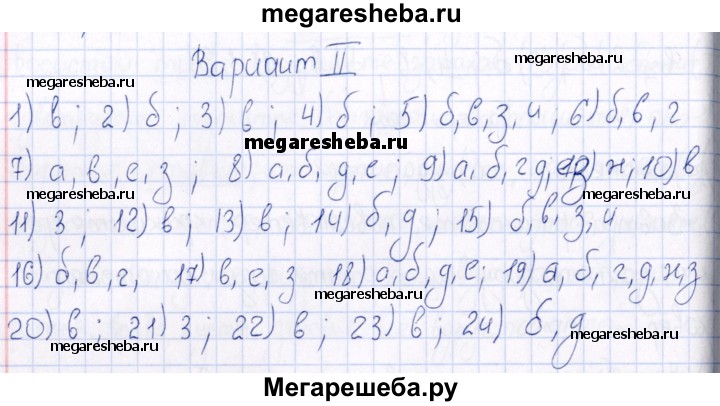 megaresheba.ru
Вариант II
megaresheba.ru
megaresheba.ru
1) в; 2) б; 3) в; 4) б; 5) б,в,з,и; 6) б,в,г
megaresheba.ru
7) а,в,е,з; 8) а,б,д,е; 9) а,б,г,д, ж; 10) в
megaresheba.ru
megaresheba.ru
11) з; 12) в; 13) в; 14) б,д; 15) б,в,з,и
16) б,в,г, 17) в,е,з 18) а,б,д,е; 19) а,б,г,д,ж,з
megaresheba.ru
20) в; 21) з; 22) в; 23) в; 24) б,д
megaresheba.ru
megaresheba.ru
Мегарешеба.ру